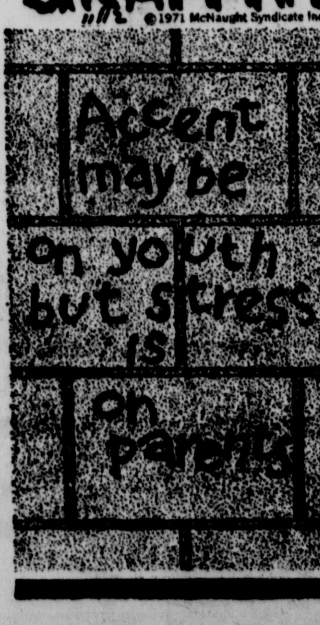 11/12 ©1971 McNaught Syndicate Inc
Accent
may be
on youth
but stress
is
on
parents